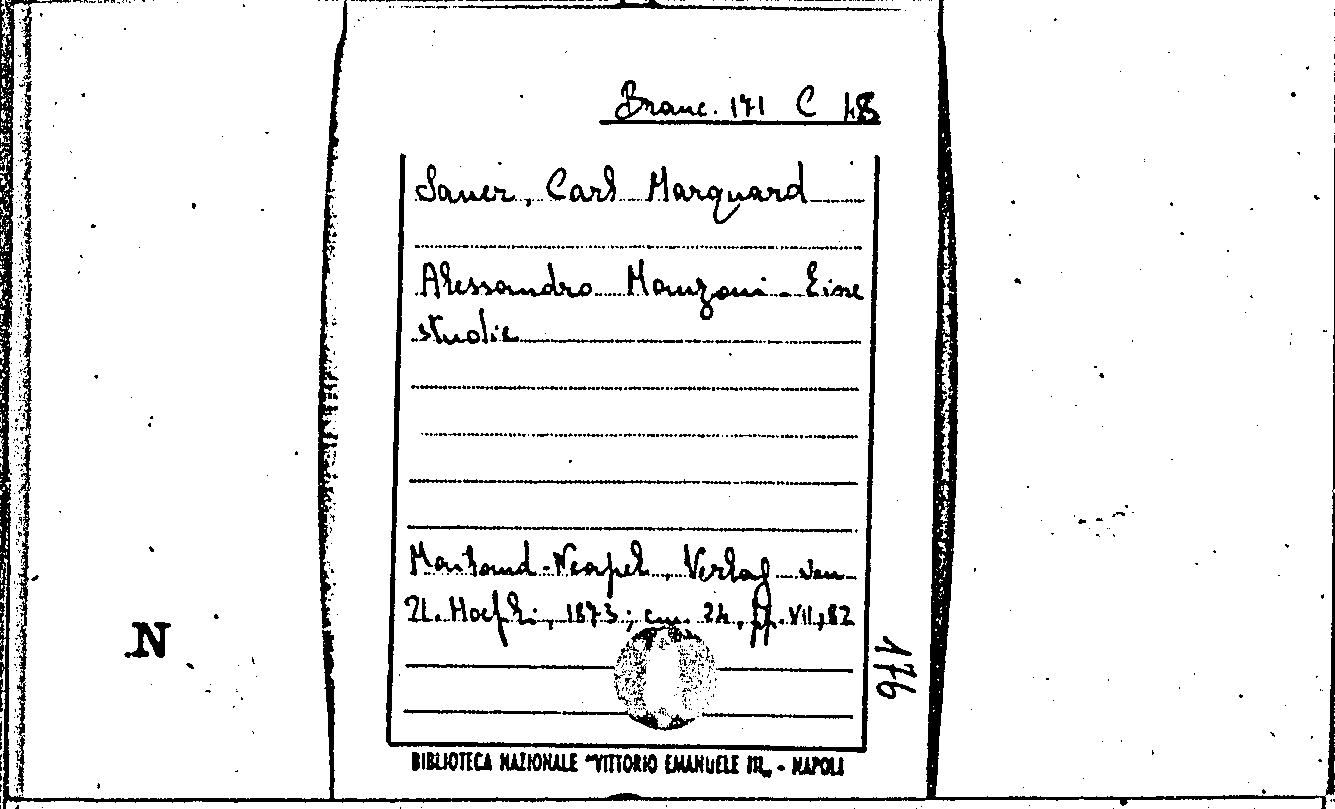 Branc. 171 C 48
Sauer, Carl Marquard
Alessandro Manzoni - Eine
studie
Mailand-Neapel, Verlag von
U. Hoepli, 1873; cm. 24, pp. VII, 82
N
176
BIBLIOTECA NAZIONALE "VITTORIO EMANUELE III" - NAPOLI